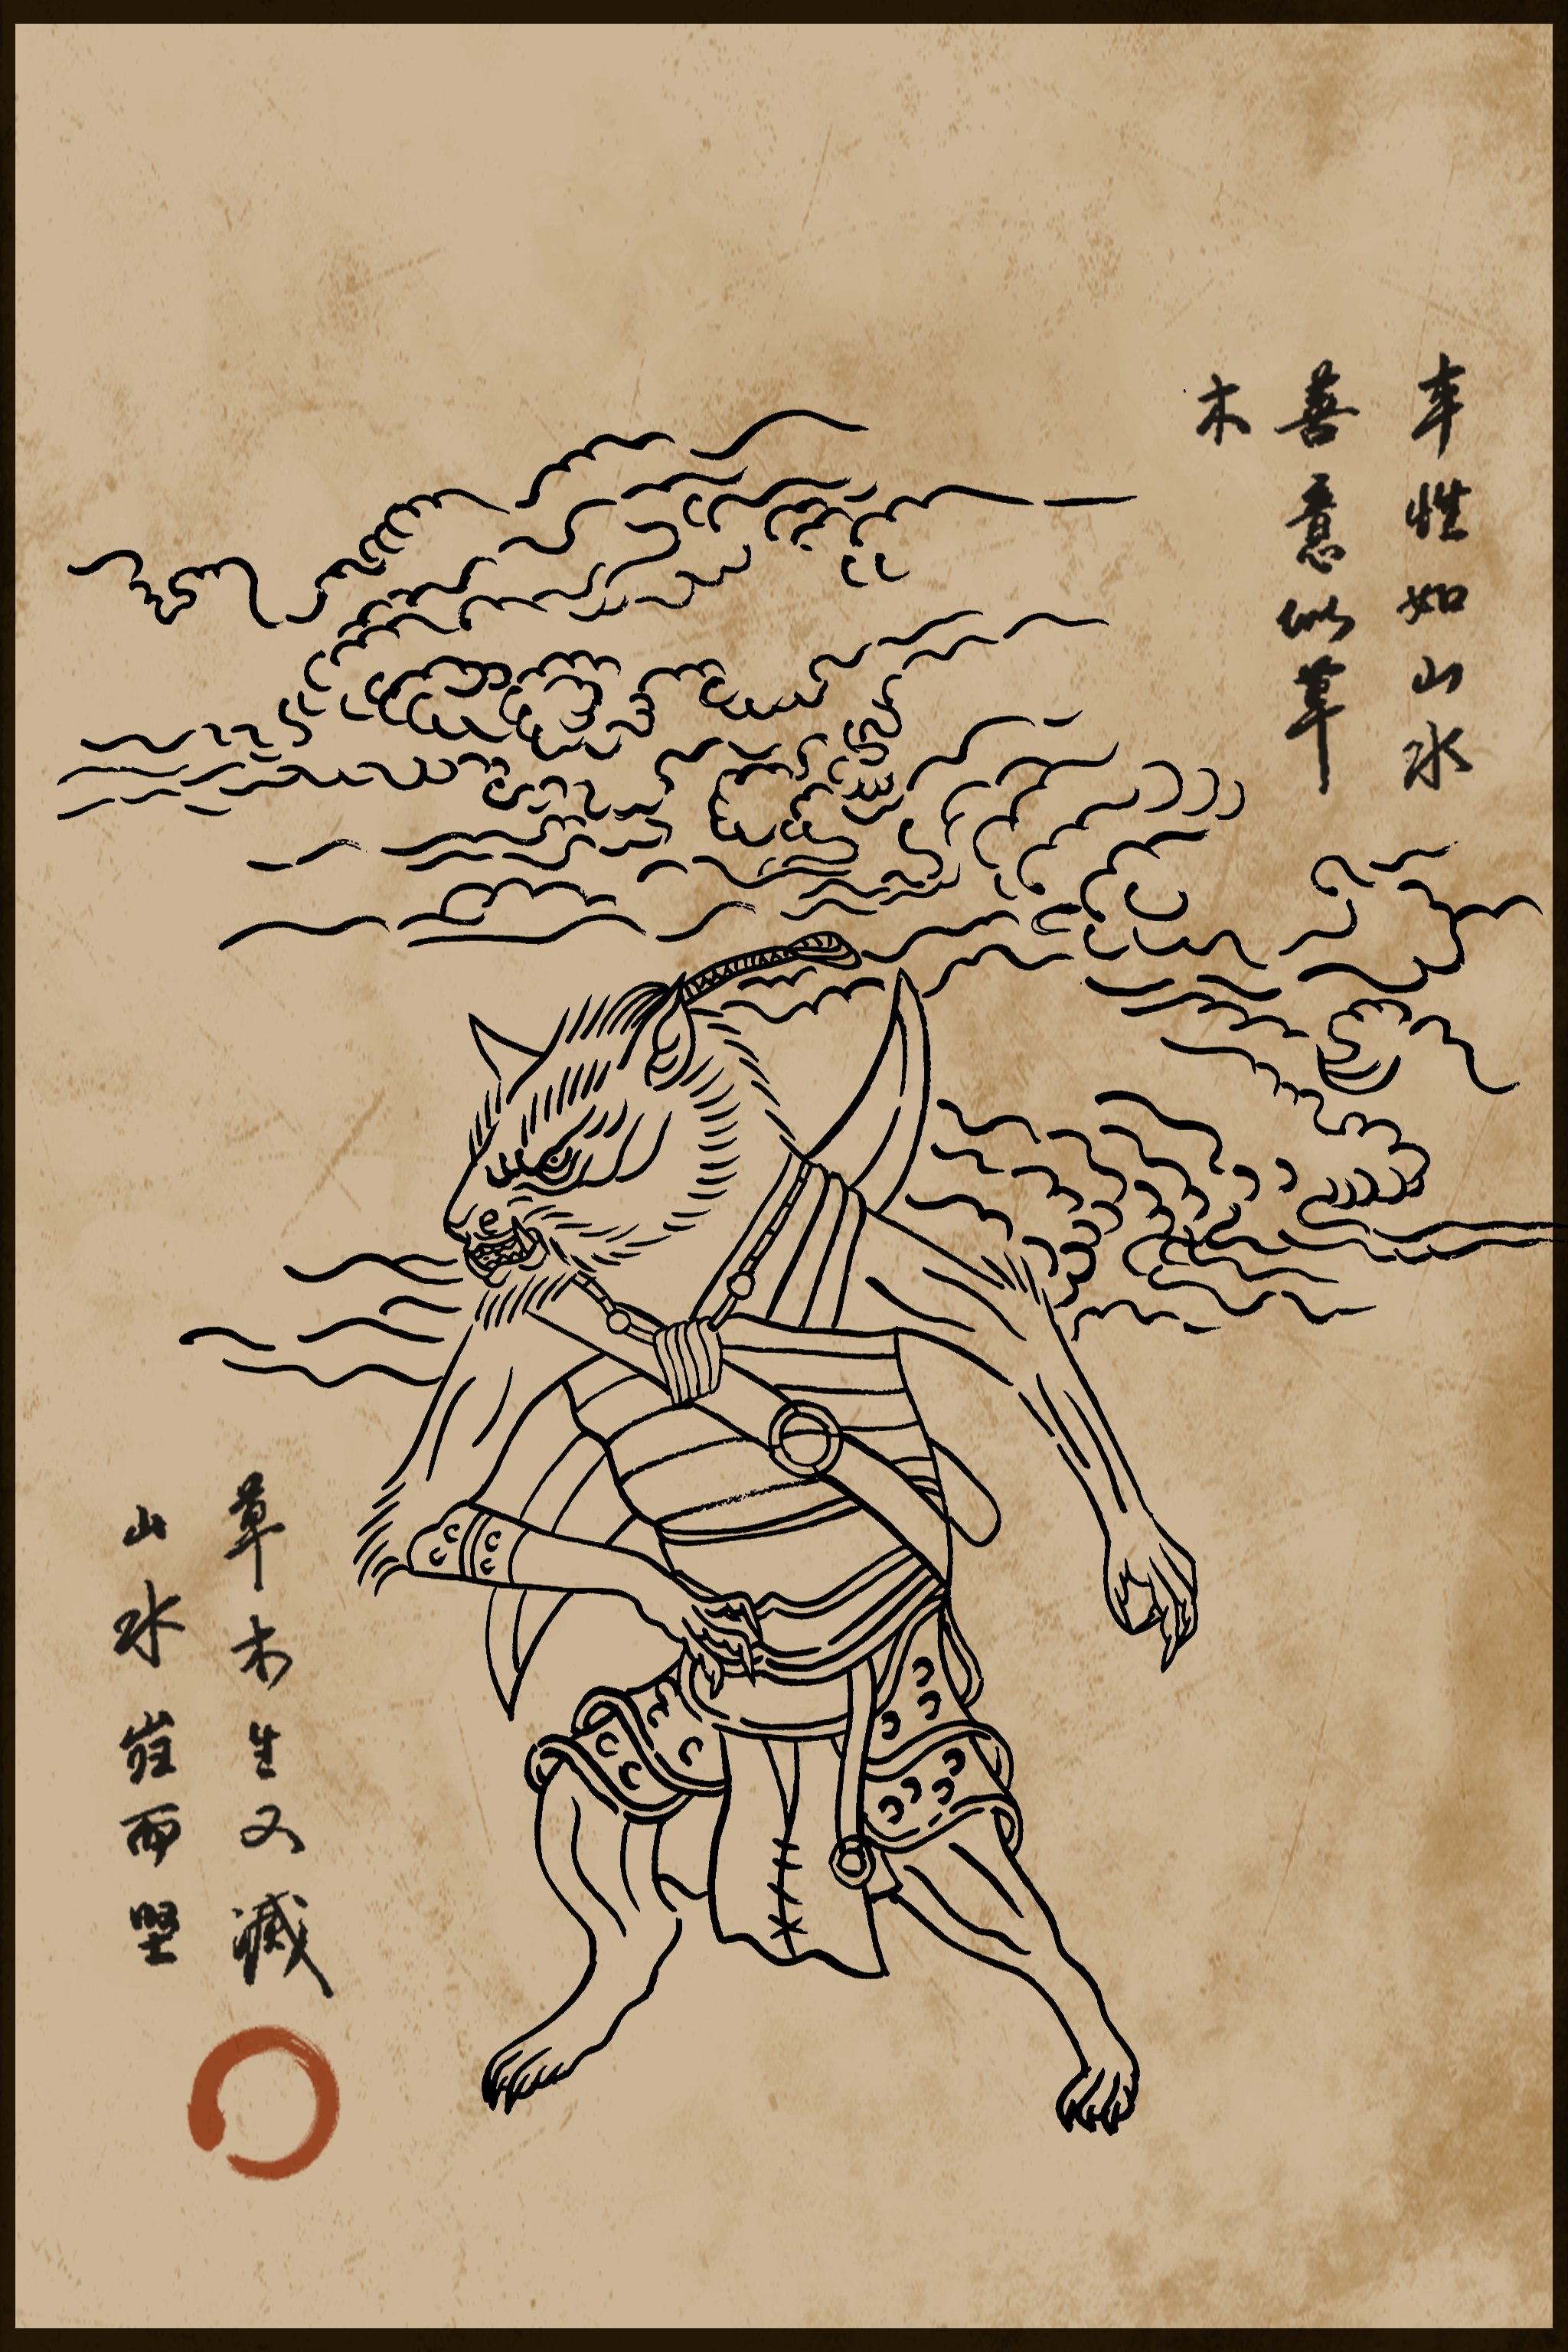 性如山水
善意似草
木
草木生又滅
山水而堅